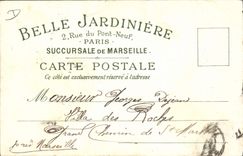 BELLE JARDINIÈRE
2, Rue du Pont-Neuf.
PARIS
SUCCURSALE DE MARSEILLE.
CARTE POSTALE
Ce côté est exclusivement réservé à l'adresse
Monsieur Georges
Villa des Roches
Grand Chemin de St
près Marseille